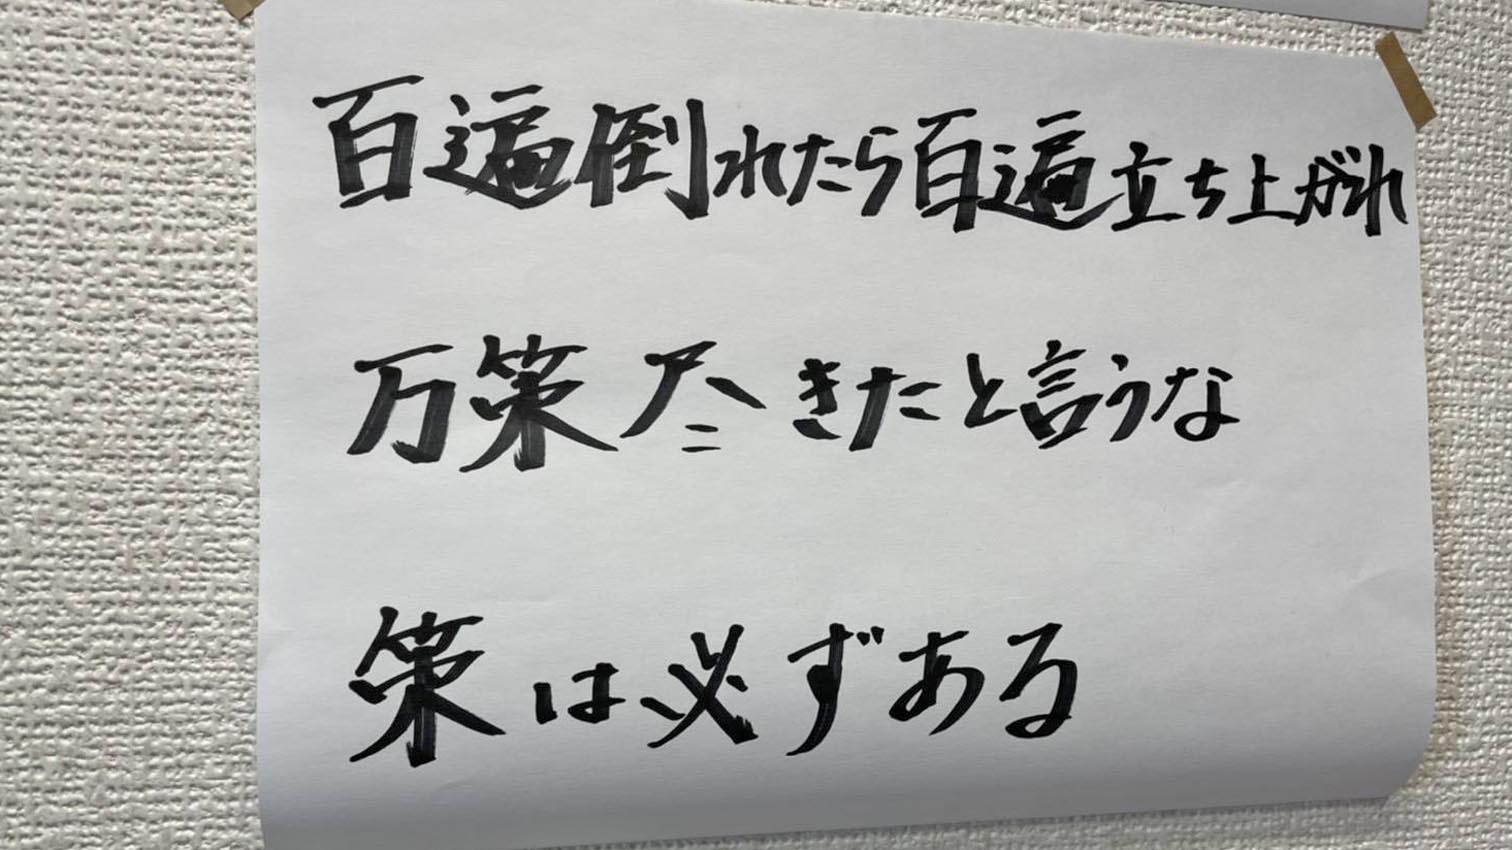 百遍倒れたら百遍立ち上がれ
万策尽きたと言うな
策は必ずある